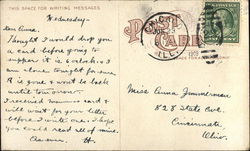 THIS SPACE FOR WRITING MESSAGES
Wednesday-
Dear Anna.
Thought I would drop you
a card before going to
supper it is 6 o'clock. I
am alone tonight for sure.
H is gone & wont be back
until tomorrow.
I received card & I
will wait for your letter
before I write one. I hope
you could read all of mine.
POST
CARD
ILL.
Miss Anna Zimmerman
828 State Ave.
Cincinnati
Ohio.